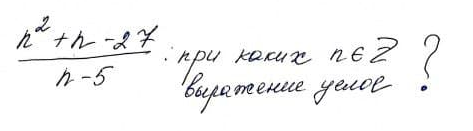 n² + n - 27
n - 5
: при каких n ∈ Z
выражение целое ?